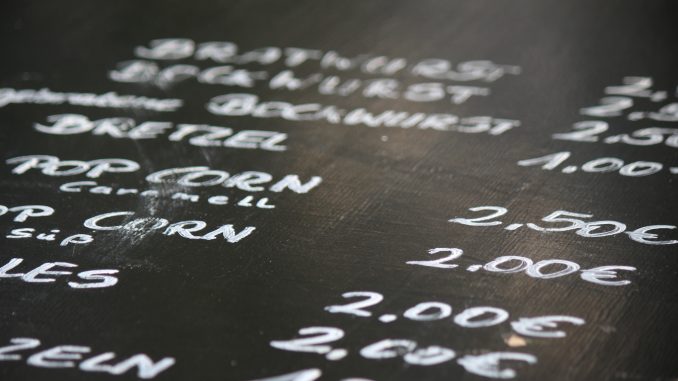 BRATWURST 2.
BOCKWURST 2.5
BOCKWURST 2.50
BRETZEL 1.00
POP CORN 2.50€
Caramell
OP CORN 2.00€
Süß
LES 2.00€
ZELN 2.00€